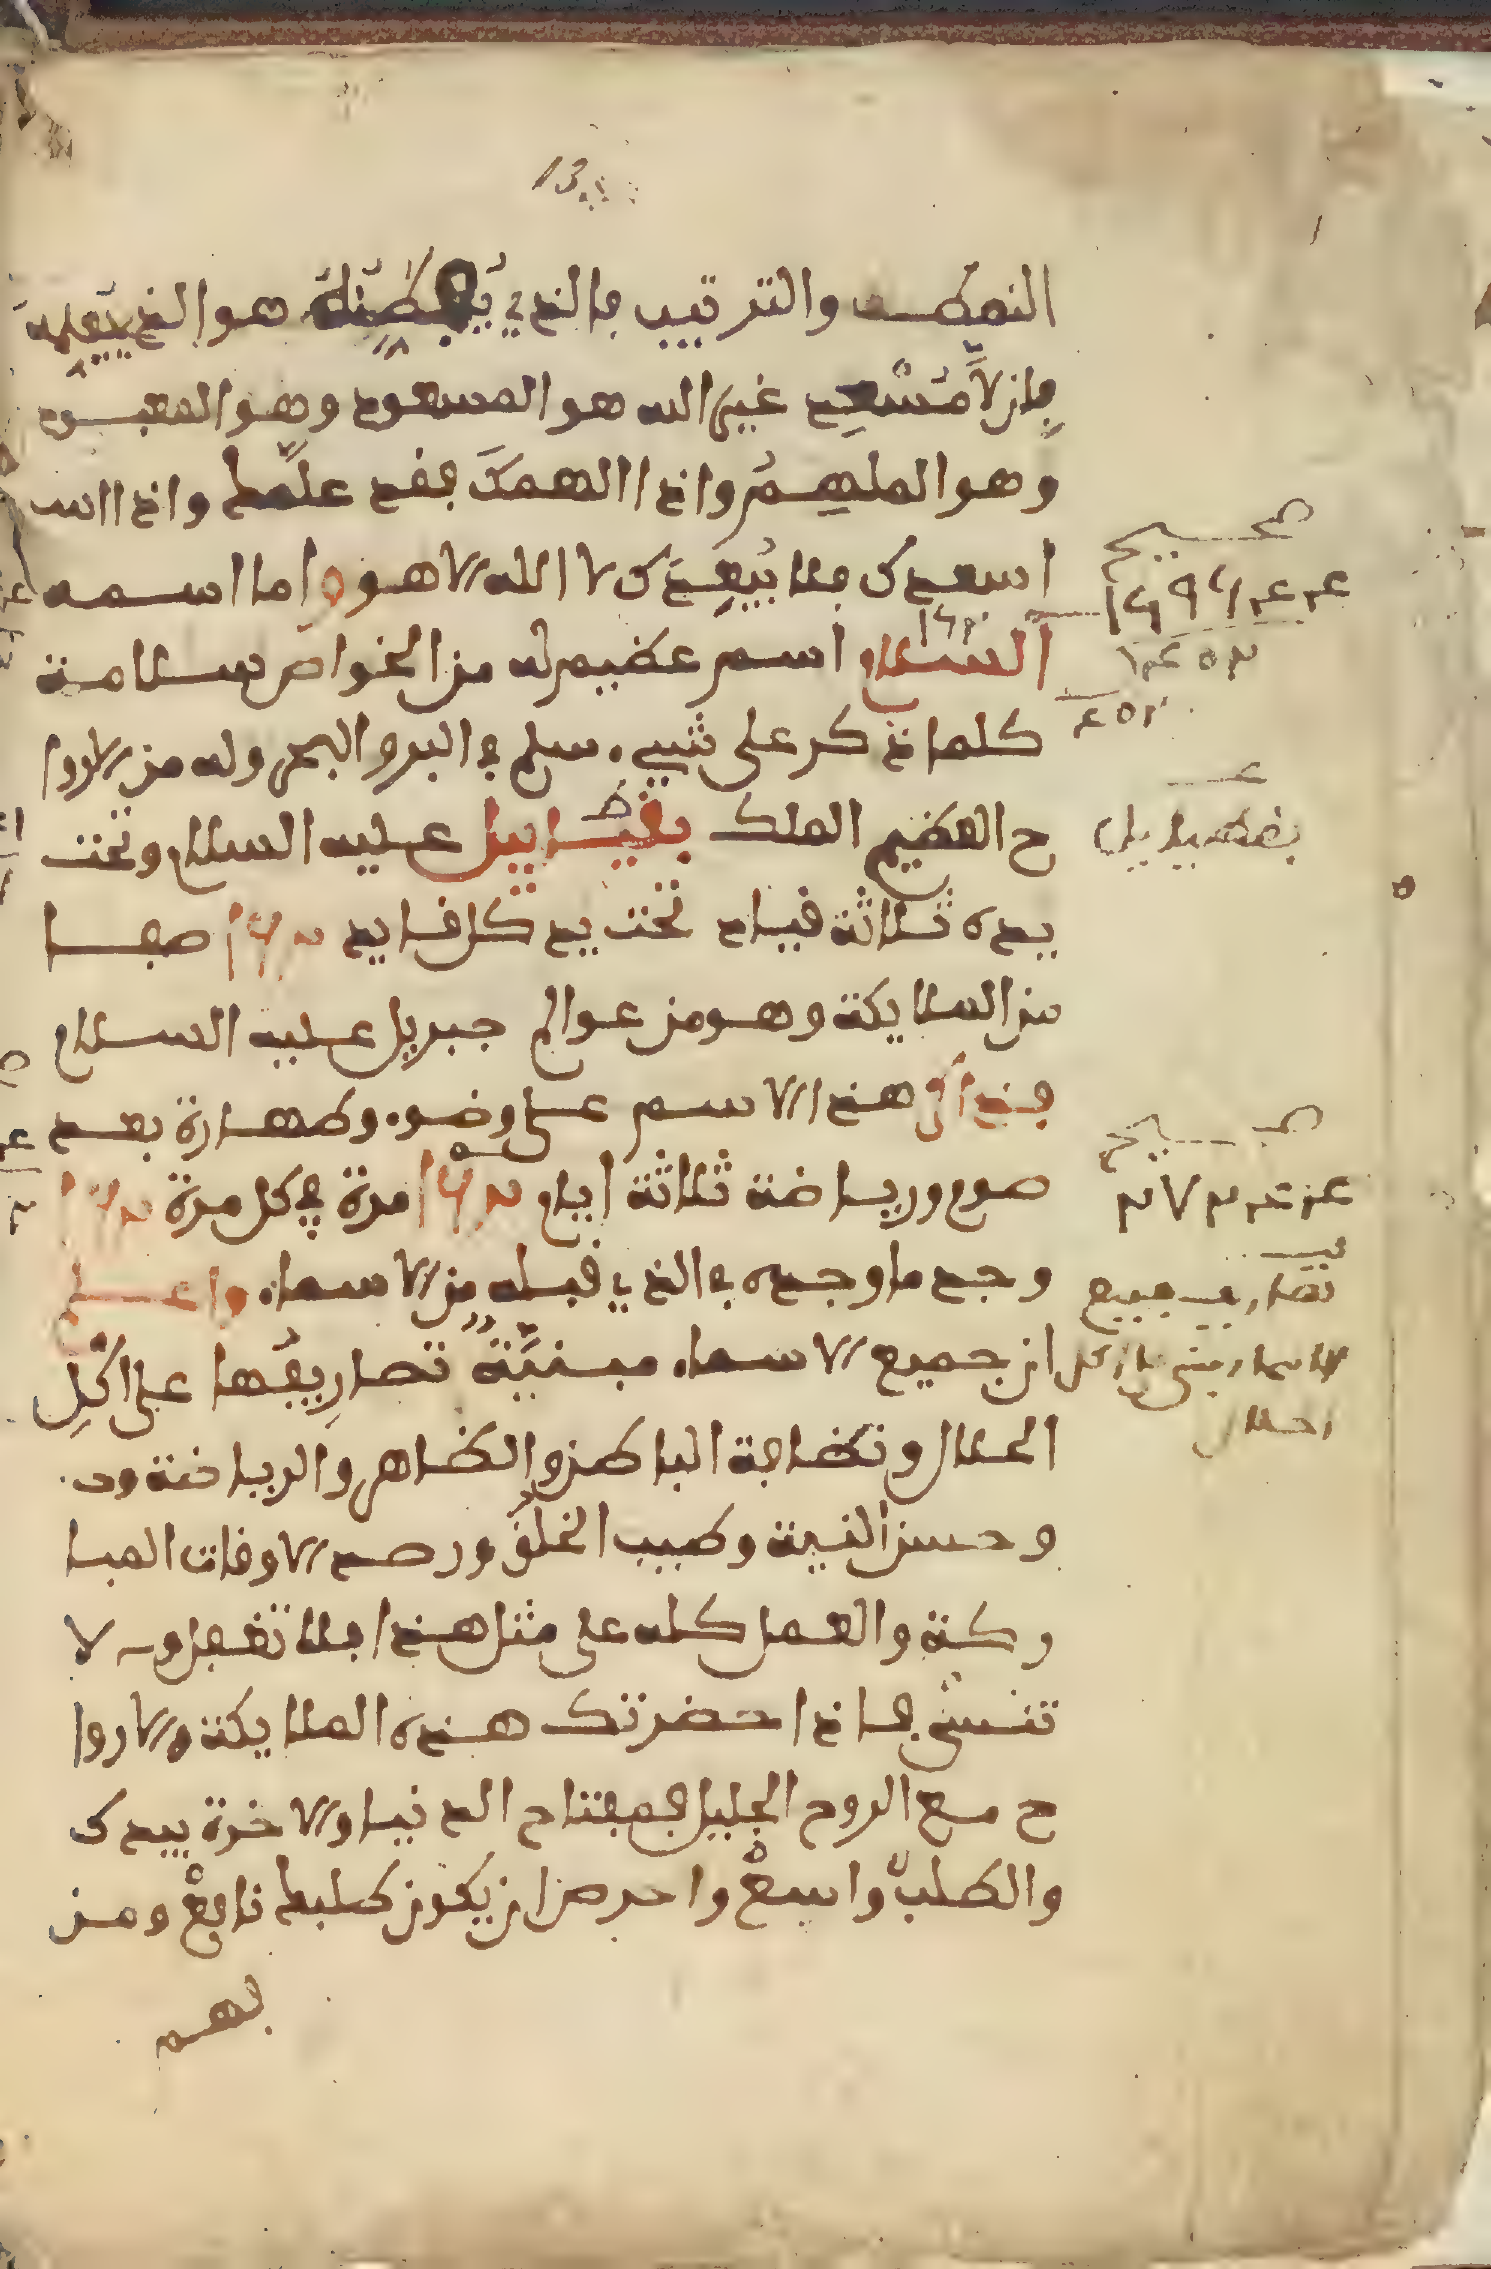 13
النمط والترتيب فالذي يبطله هو الذي يقيمه
فإن لا مسعد غير الله هو المسعود وهو المعبود
وهو الملهم واذا الهمك فقد علمك واذا اس
اسعدك فلا يبعدك لا الله الا هو واما اسمه
السلام اسم عظيم له من الخواص سلامة
كلما ذكر على شيء سلم في البر والبحر وله من الاروا
ح العظيم الملك عليه السلام وتحت
يده ثلاثة قياد تحت يد كل قايد ١٣١ صفا
من الملايكة وهو من عوالم جبريل عليه السلام
فذاكر هذا الاسم على وضوء وطهارة بعد
صوم ورياضة ثلاثة ايام ١٣١ مرة في كل مرة ١٣١
وجد ما وجده في الذي قبله من الاسماء واعلم
ان جميع الاسماء مبنية تصاريفها على اكل
الحلال ونظافة الباطن والظاهر والرياضة
وحسن النية وطيب الخلق ورصد الاوقات المبا
ركة والعمل كله على مثل هذا فلا تغفل ولا
تنسى فاذا حضرتك هذه الملايكة والاروا
ح مع الروح الجليل فمفتاح الدنيا والاخرة بيدك
والطلب واسع واحرص ان يكون طلبك نافع ومن
بهم
صحيح
صحيح
تصاريف جميع
الاسماء مبنى على اكل
احلال